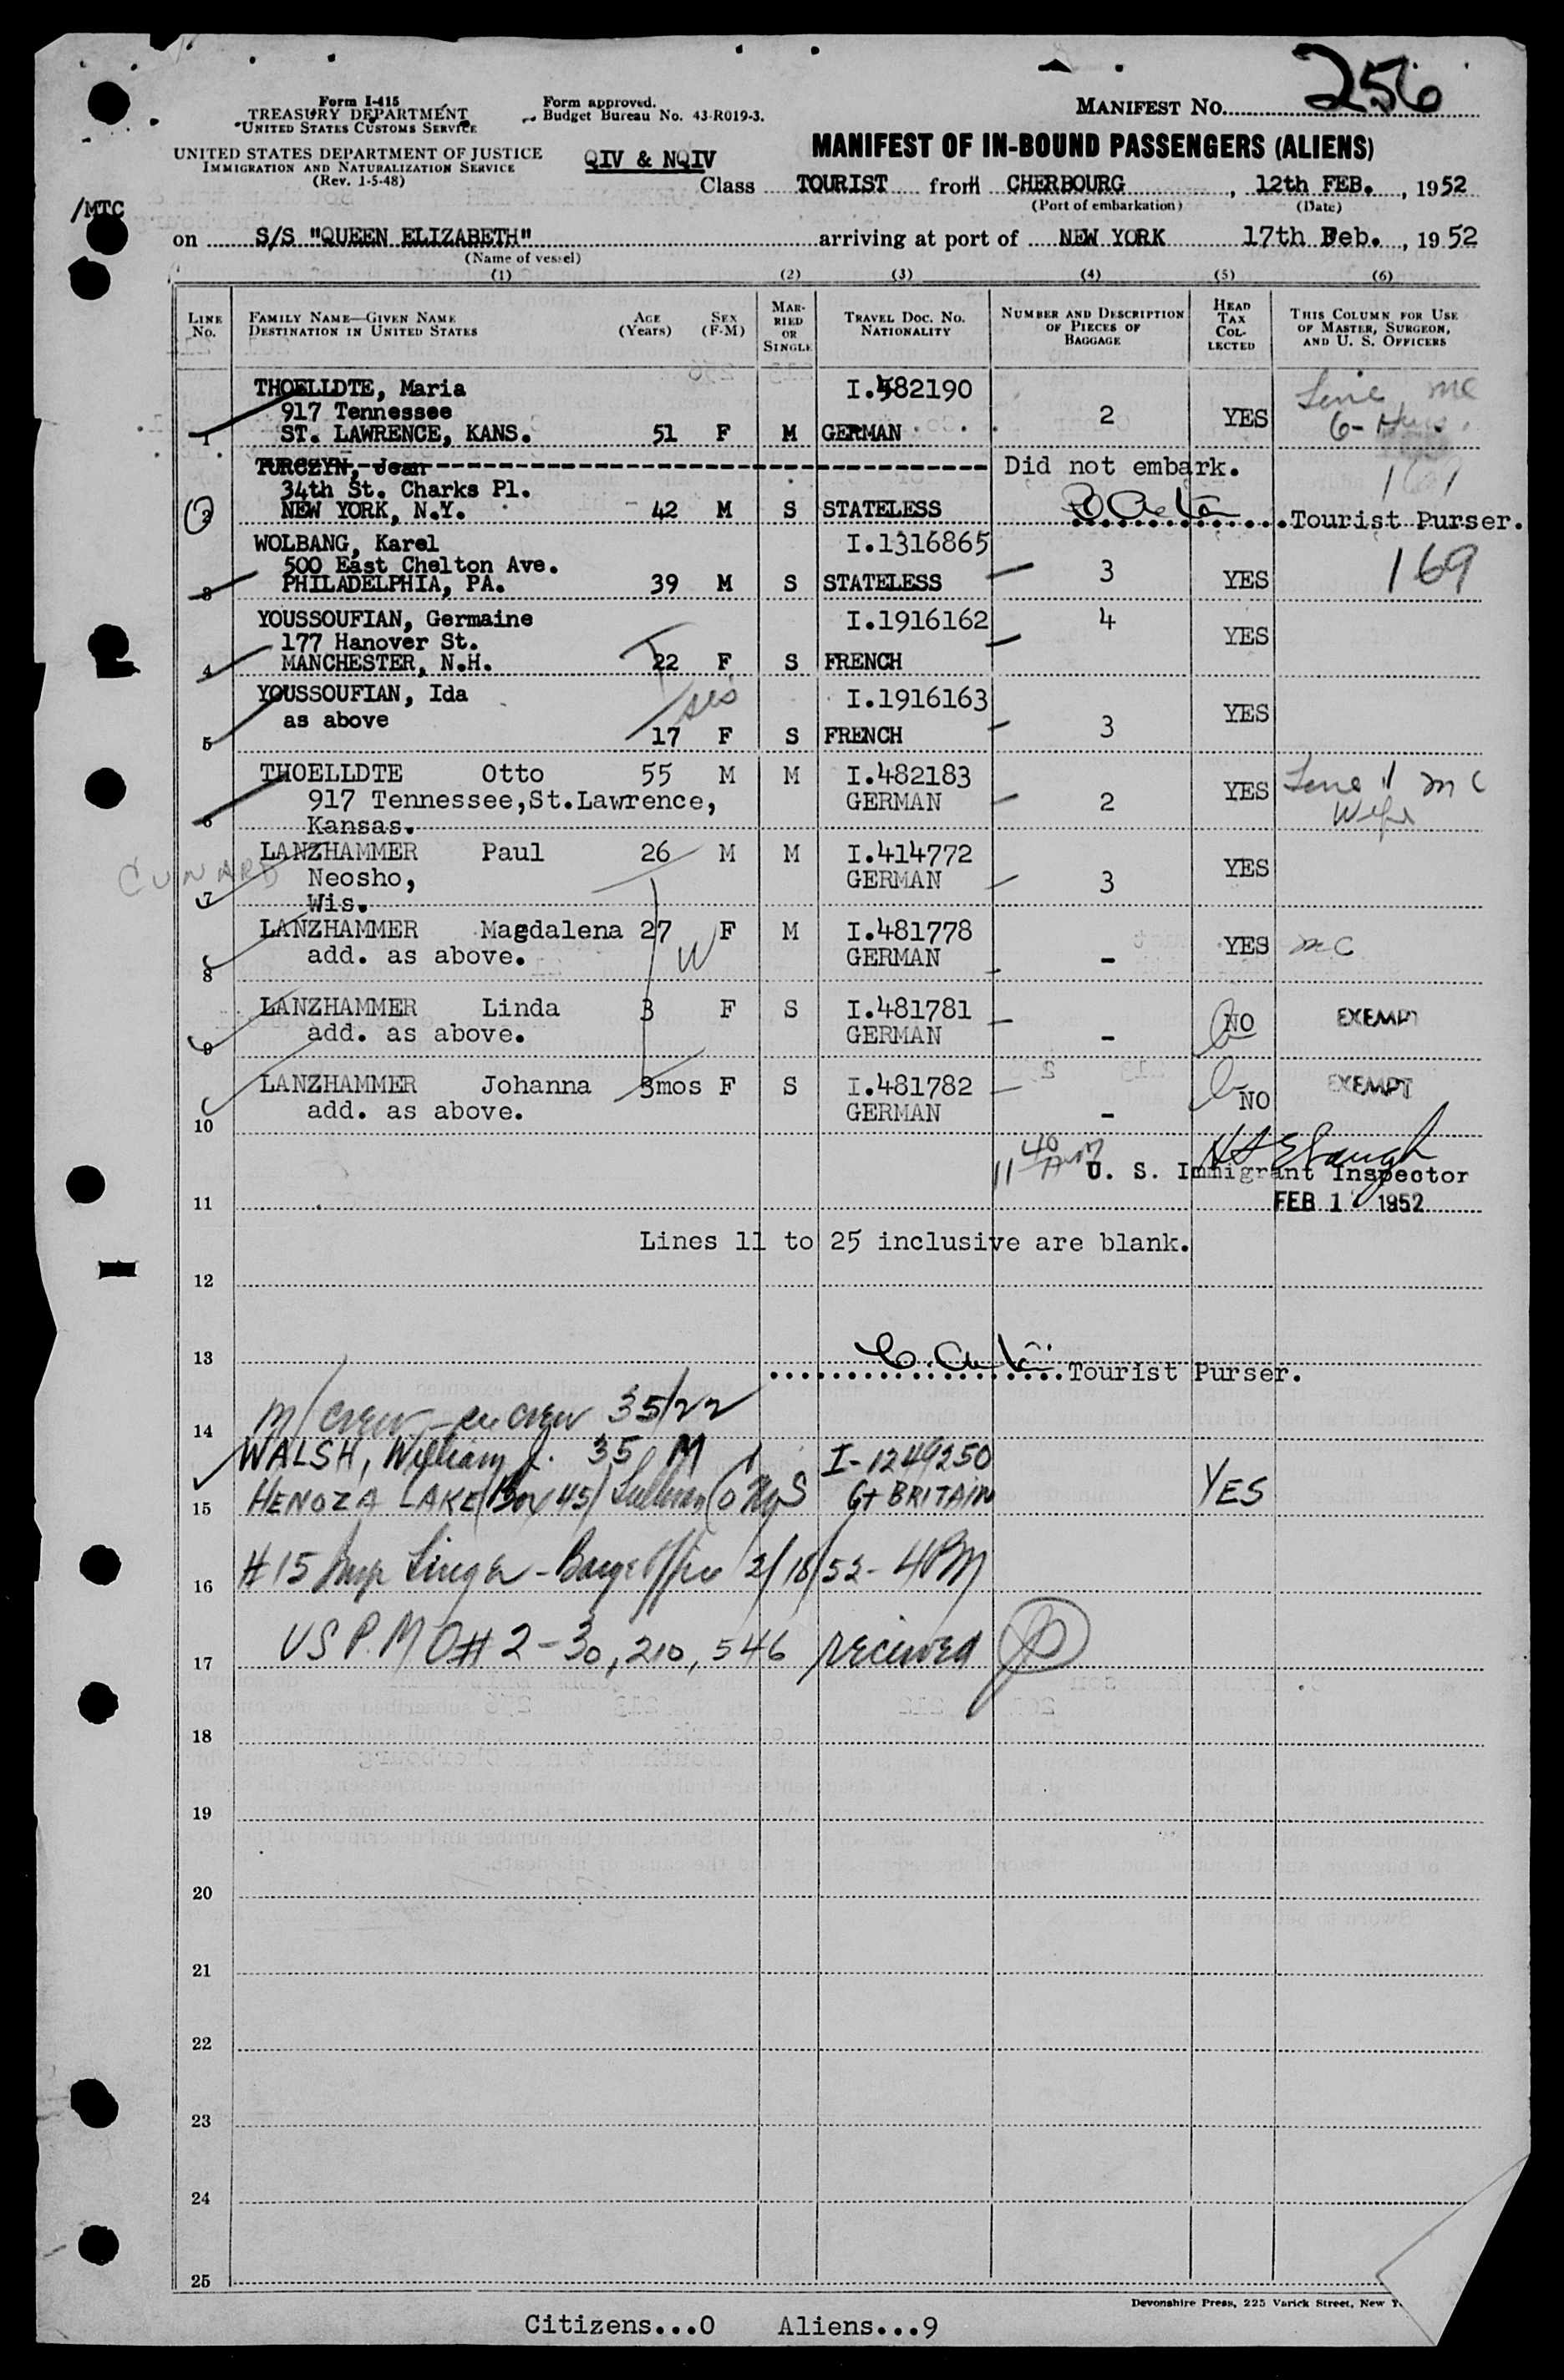 256
Form I-415
TREASURY DEPARTMENT
UNITED STATES CUSTOMS SERVICE
Form approved.
Budget Bureau No. 43-R019-3.
MANIFEST NO.
UNITED STATES DEPARTMENT OF JUSTICE
IMMIGRATION AND NATURALIZATION SERVICE
(Rev. 1-5-48)
QIV & NQIV
MANIFEST OF IN-BOUND PASSENGERS (ALIENS)
Class TOURIST from CHERBOURG, 12th FEB., 1952
(Port of embarkation) (Date)
/MTC
on S/S "QUEEN ELIZABETH" arriving at port of NEW YORK 17th Feb., 1952
(Name of vessel)
(1) (2) (3) (4) (5) (6)
LINE NO.
FAMILY NAME—GIVEN NAME
DESTINATION IN UNITED STATES
AGE (Years)
SEX (F-M)
MARRIED OR SINGLE
TRAVEL DOC. NO.
NATIONALITY
NUMBER AND DESCRIPTION OF PIECES OF BAGGAGE
HEAD TAX COLLECTED
THIS COLUMN FOR USE OF MASTER, SURGEON, AND U. S. OFFICERS
THOELLDTE, Maria I.482190 Line mc
917 Tennessee 2 YES 6-
1 ST. LAWRENCE, KANS. 51 F M GERMAN
TURCZYN, Jean Did not embark.
34th St. Charks Pl.
2 NEW YORK, N.Y. 42 M S STATELESS Tourist Purser.
WOLBANG, Karel I.1316865 169
500 East Chelton Ave. 3
3 PHILADELPHIA, PA. 39 M S STATELESS YES
YOUSSOUFIAN, Germaine I.1916162 4
177 Hanover St. YES
4 MANCHESTER, N.H. 22 F S FRENCH
YOUSSOUFIAN, Ida sis I.1916163
as above 3 YES
5 17 F S FRENCH
THOELLDTE Otto 55 M M I.482183 YES Line 1 mc
6 917 Tennessee,St.Lawrence, GERMAN 2 Wife
Kansas.
LANZHAMMER Paul 26 M M I.414772 YES
CUNARD
7 Neosho, GERMAN 3
Wis.
LANZHAMMER Magdalena 27 F M I.481778 YES mc
8 add. as above. W GERMAN -
LANZHAMMER Linda 3 F S I.481781 NO EXEMPT
9 add. as above. GERMAN -
LANZHAMMER Johanna 3mos F S I.481782 NO EXEMPT
10 add. as above. GERMAN -
11 40 AM U. S. Immigrant Inspector
11 FEB 1 1952
Lines 11 to 25 inclusive are blank.
12
13
Tourist Purser.
14 35/22
WALSH, William J. 35 M I-1249250
15 HENOZA LAKE (Box 45) Sullivan Co NY S Gt BRITAIN YES
16 #15 Insp Singer - Barge Office 2/18/52 - 4PM
17 USP.MO# 2-30,210,546 received
18
19
20
21
22
23
24
25
Devonshire Press, 225 Varick Street, New Y.
Citizens...0 Aliens...9